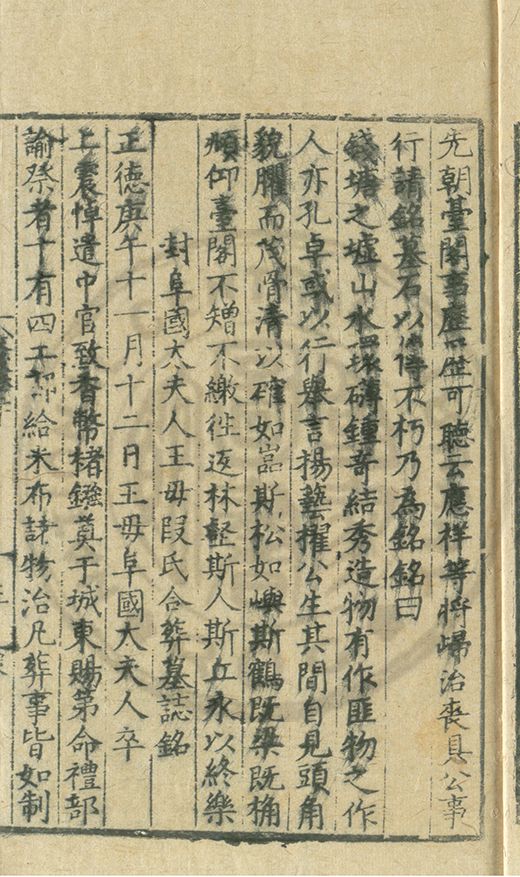 先朝臺閣事歷歷可聽云應祥等將歸治喪具公事
行請銘墓石以傳不朽乃為銘銘曰
錢塘之墟山水環礴鍾奇結秀造物有作匪物之作
人亦孔卓或以行舉言揚藝擢公生其間自見頭角
貌臞而茂骨清以確如嵓斯松如嶼斯鶴既梁既桷
頫仰臺閣不矰不繳徃返林壑斯人斯丘永以終樂
封阜國太夫人王母段氏合葬墓誌銘
正德庚午十一月十二日王母阜國太夫人卒
上震悼遣中官致香幣楮鏹奠于城東賜第命禮部
諭祭者十有四工部給米布諸物治凡葬事皆如制